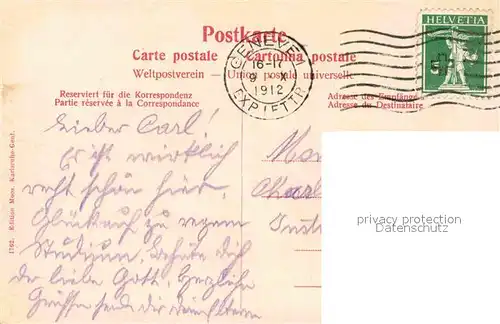 Postkarte
Carte postale — Cartolina postale
Weltpostverein — Union postale universelle
Reserviert für die Korrespondenz
Partie réservée à la Correspondance
Adresse des Empfängers
Adresse du Destinataire
HELVETIA
5
GENEVE 1
16-17
9 X
1912
EXP. LETTR.
Lieber Carl!
Es ist wirklich
recht schön hier,
Glückauf zu regem
Studium. Behüte dich
der liebe Gott. Herzliche
Grüsse sendet dir dein Eltern
Mon
Charl
Instit
1762. Edition Muss, Karlsruhe-Genf.
privacy protection
Datenschutz